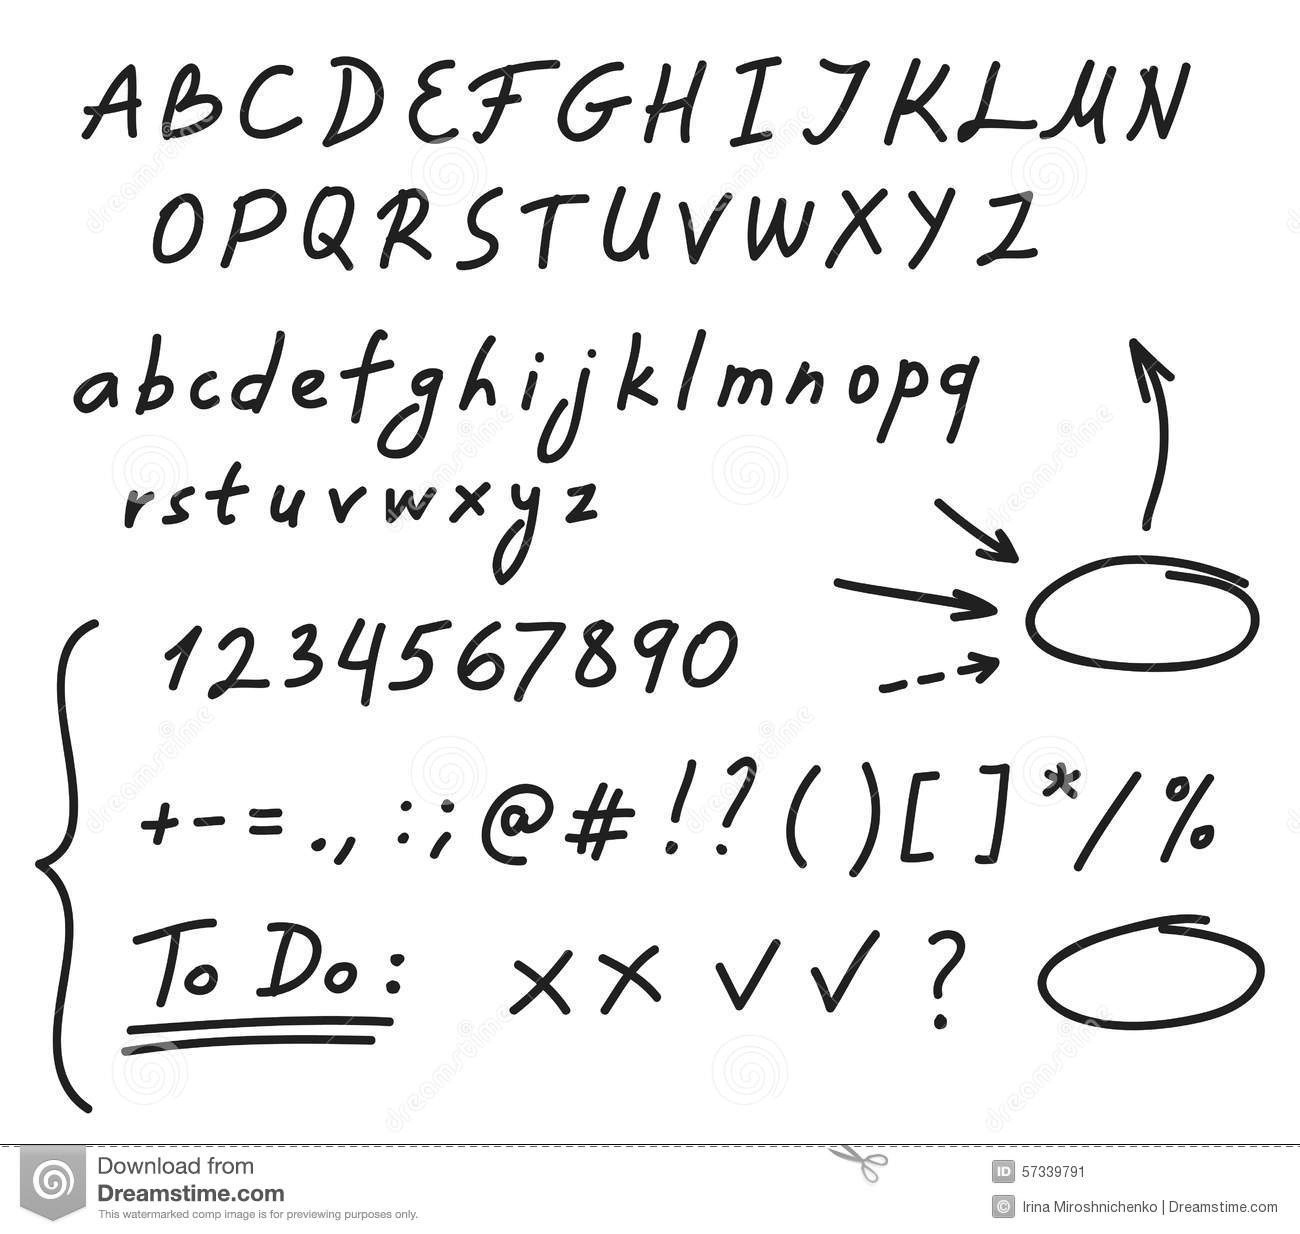 ABCDEFGHIJKLMN
OPQRSTUVWXYZ
abcdefghijklmnopq
rstuvwxyz
1234567890
+-=.,:;@#!?()[]*/%
To Do: xx✓✓?
Download from
Dreamstime.com
This watermarked comp image is for previewing purposes only.
ID 57339791
© Irina Miroshnichenko | Dreamstime.com